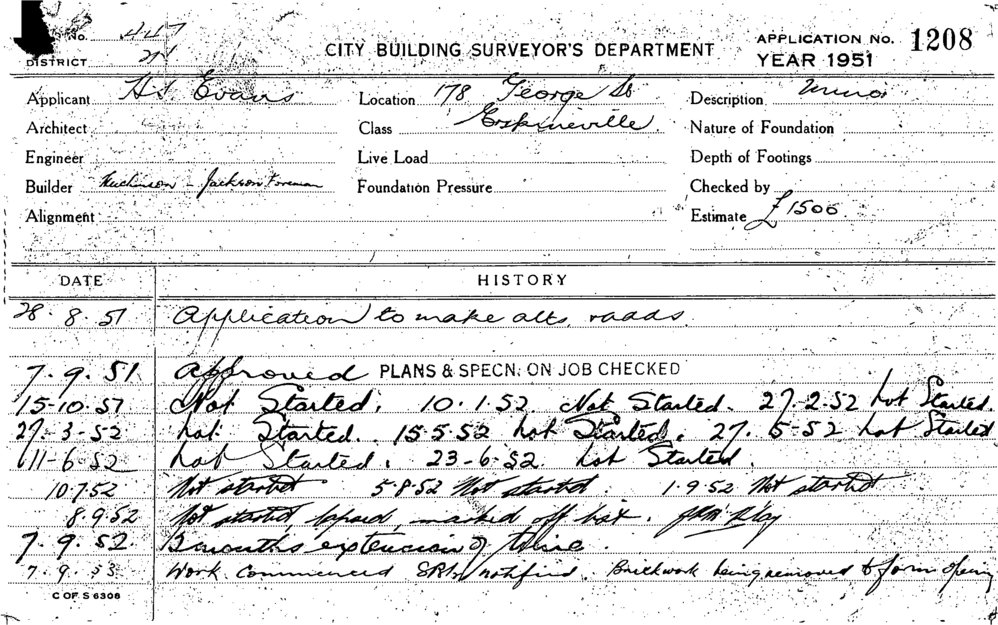 No. 447
DISTRICT 21
CITY BUILDING SURVEYOR'S DEPARTMENT
APPLICATION No. 1208
YEAR 1951
Applicant H.J. Evans
Location 178 George St
Description Minor
Architect
Class Erskineville
Nature of Foundation
Engineer
Live Load
Depth of Footings
Builder Hutchinson - Jackson Foreman
Foundation Pressure
Checked by
Alignment
Estimate £1500
DATE HISTORY
28. 8. 51 Application to make alts, & adds.
7. 9. 51. Approved PLANS & SPECN. ON JOB CHECKED
15-10-51 Not Started. 10.1.52. Not Started. 27-2-52 not Started.
27-3-52 not Started. 15.5.52 not Started. 27. 5-52 not Started
11-6-52 not Started. 23-6-52 not Started.
10.7.52 Not started 5.8.52 Not started. 1.9.52 Not started
8.9.52 Not started lapsed, marked off list.
7. 9. 52. 3 months extension of time.
7. 9. 53. Work Commenced notified. Brickwork being removed to form opening
C OF S 6306